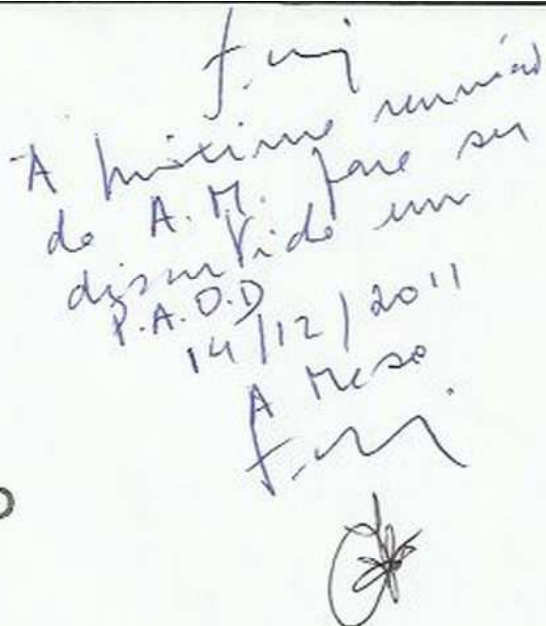 A próxima reunião
da A.M. para ser
discutido em
P.A.O.D
14/12/2011
A Mesa